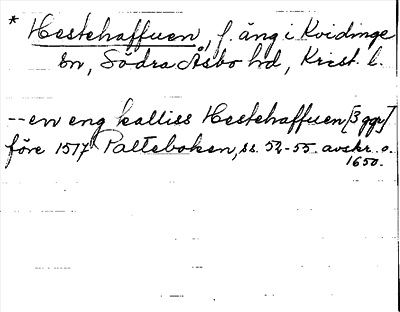 * Hestehaffuen, f. äng i Kvidinge
sn, Södra Åsbo hd, Krist. l.
-- en eng kalliss Hestehaffuen [3 ggr]
före 1517 Palteboken, ss. 52-55 avskr. o.
1650.